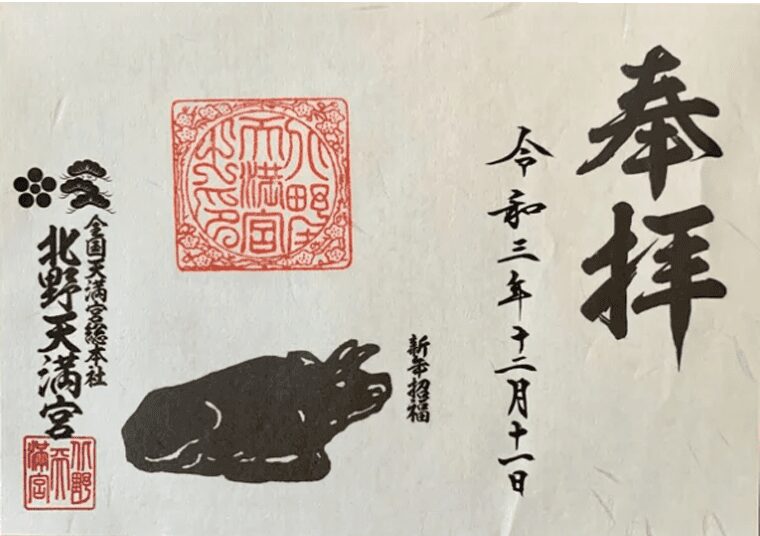 奉拝
令和三年十二月十一日
新年招福
北野天満宮
全国天満宮総本社
北野天満宮
北野天満宮